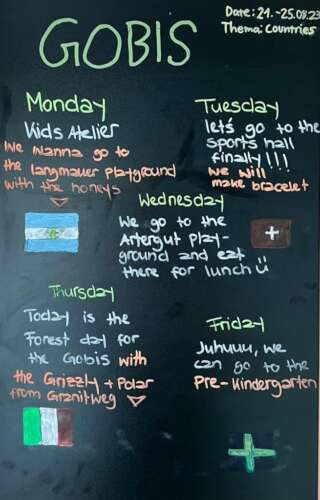 GOBIS
Date: 21. - 25.08.23
Thema: Countries
Monday
Kids Atelier
We wanna go to
the langmauer playground
with the honeys
Tuesday
let's go to the
sports hall
finally!!!
we will
make bracelet
Wednesday
We go to the
Artergut play-
ground and eat
there for lunch
Thursday
Today is the
Forest day for
the Gobis with
the Grizzly + Polar
from Granitweg
Friday
Juhuuu, we
can go to the
Pre-Kindergarten